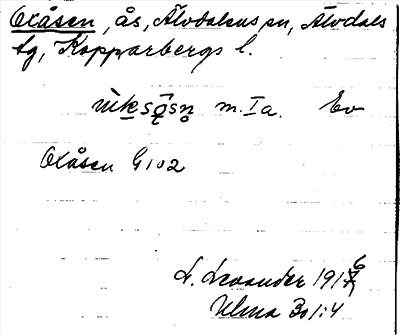 Oxåsen, ås, Älvdalens sn, Älvdals
tg, Kopparbergs l.
m. Ia. Ev
Oxåsen G 102
L. Levander 1916
Ulma Bo 1:4